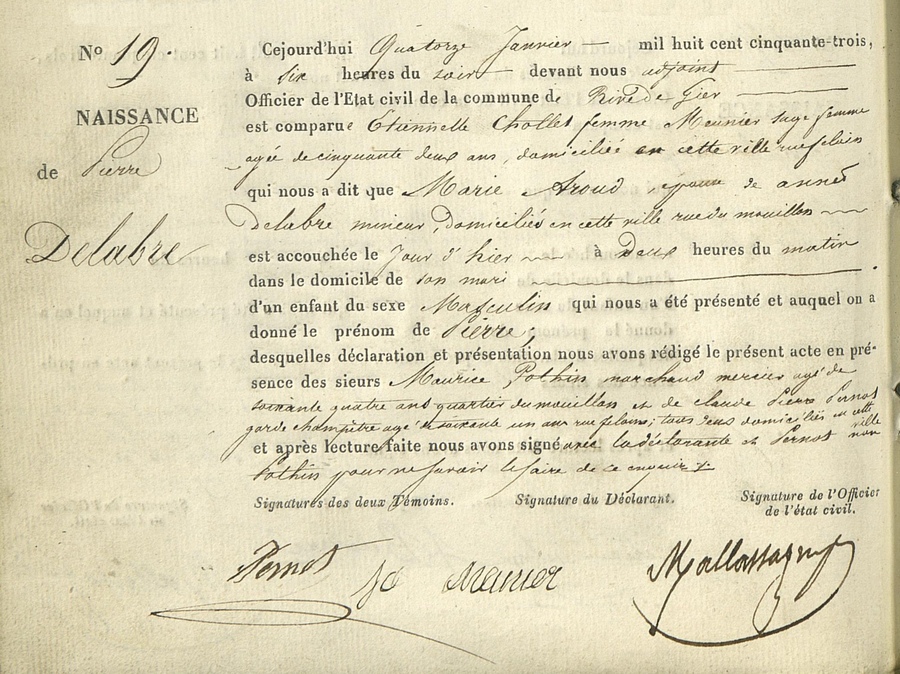 Nº 19.
NAISSANCE
de Pierre
Delabre
Cejourd'hui Quatorze Janvier mil huit cent cinquante-trois,
à Six heures du soir devant nous adjoint
Officier de l'Etat civil de la commune de Rive de Gier
est comparue Etiennette Chollet femme Meunier sage femme
agée de cinquante deux ans, domiciliée en cette ville rue
qui nous a dit que Marie Aroud, epouse de
Delabre mineur, domiciliés en cette ville rue du mouillon
est accouchée le Jour d'hier à Deux heures du matin
dans le domicile de son mari
d'un enfant du sexe Masculin qui nous a été présenté et auquel on a
donné le prénom de Pierre,
desquelles déclaration et présentation nous avons rédigé le présent acte en pré-
sence des sieurs Maurice Pothin marchand mercier agé de
soixante quatre ans quartier du mouillon et de claude Pierre Pernot
garde champêtre agé de soixante un ans rue ; tous deux domiciliés en cette ville
et après lecture faite nous avons signé avec la déclarante et Pernot non
Pothin pour ne savoir le faire de ce enquis
Signatures des deux Témoins. Signature du Déclarant. Signature de l'Officier
de l'état civil.
Pernot fe Meunier